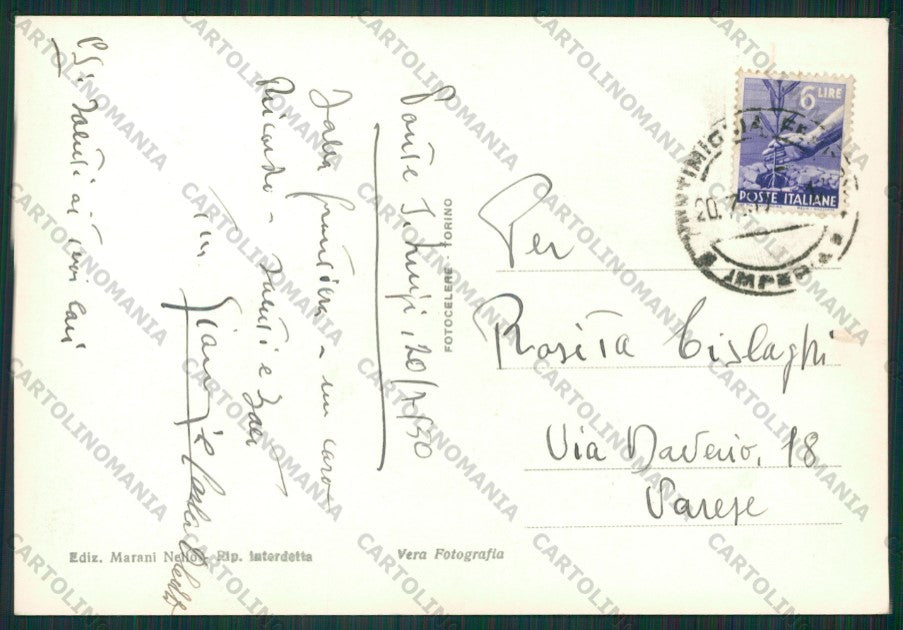 Ponte S. Luigi, 20/7/50
Dalla frontiera - un caro
Ricordo - Saluti e baci
Tua
P.S. Saluti ai tuoi cari
FOTOCELERE - TORINO
6 LIRE
POSTE ITALIANE
VENTIMIGLIA
20.7
IMPERIA
Per
Rosita Cislaghi
Via Daverio, 18
Varese
Ediz. Marani Nello - Rip. interdetta
Vera Fotografia
CARTOLINOMANIA